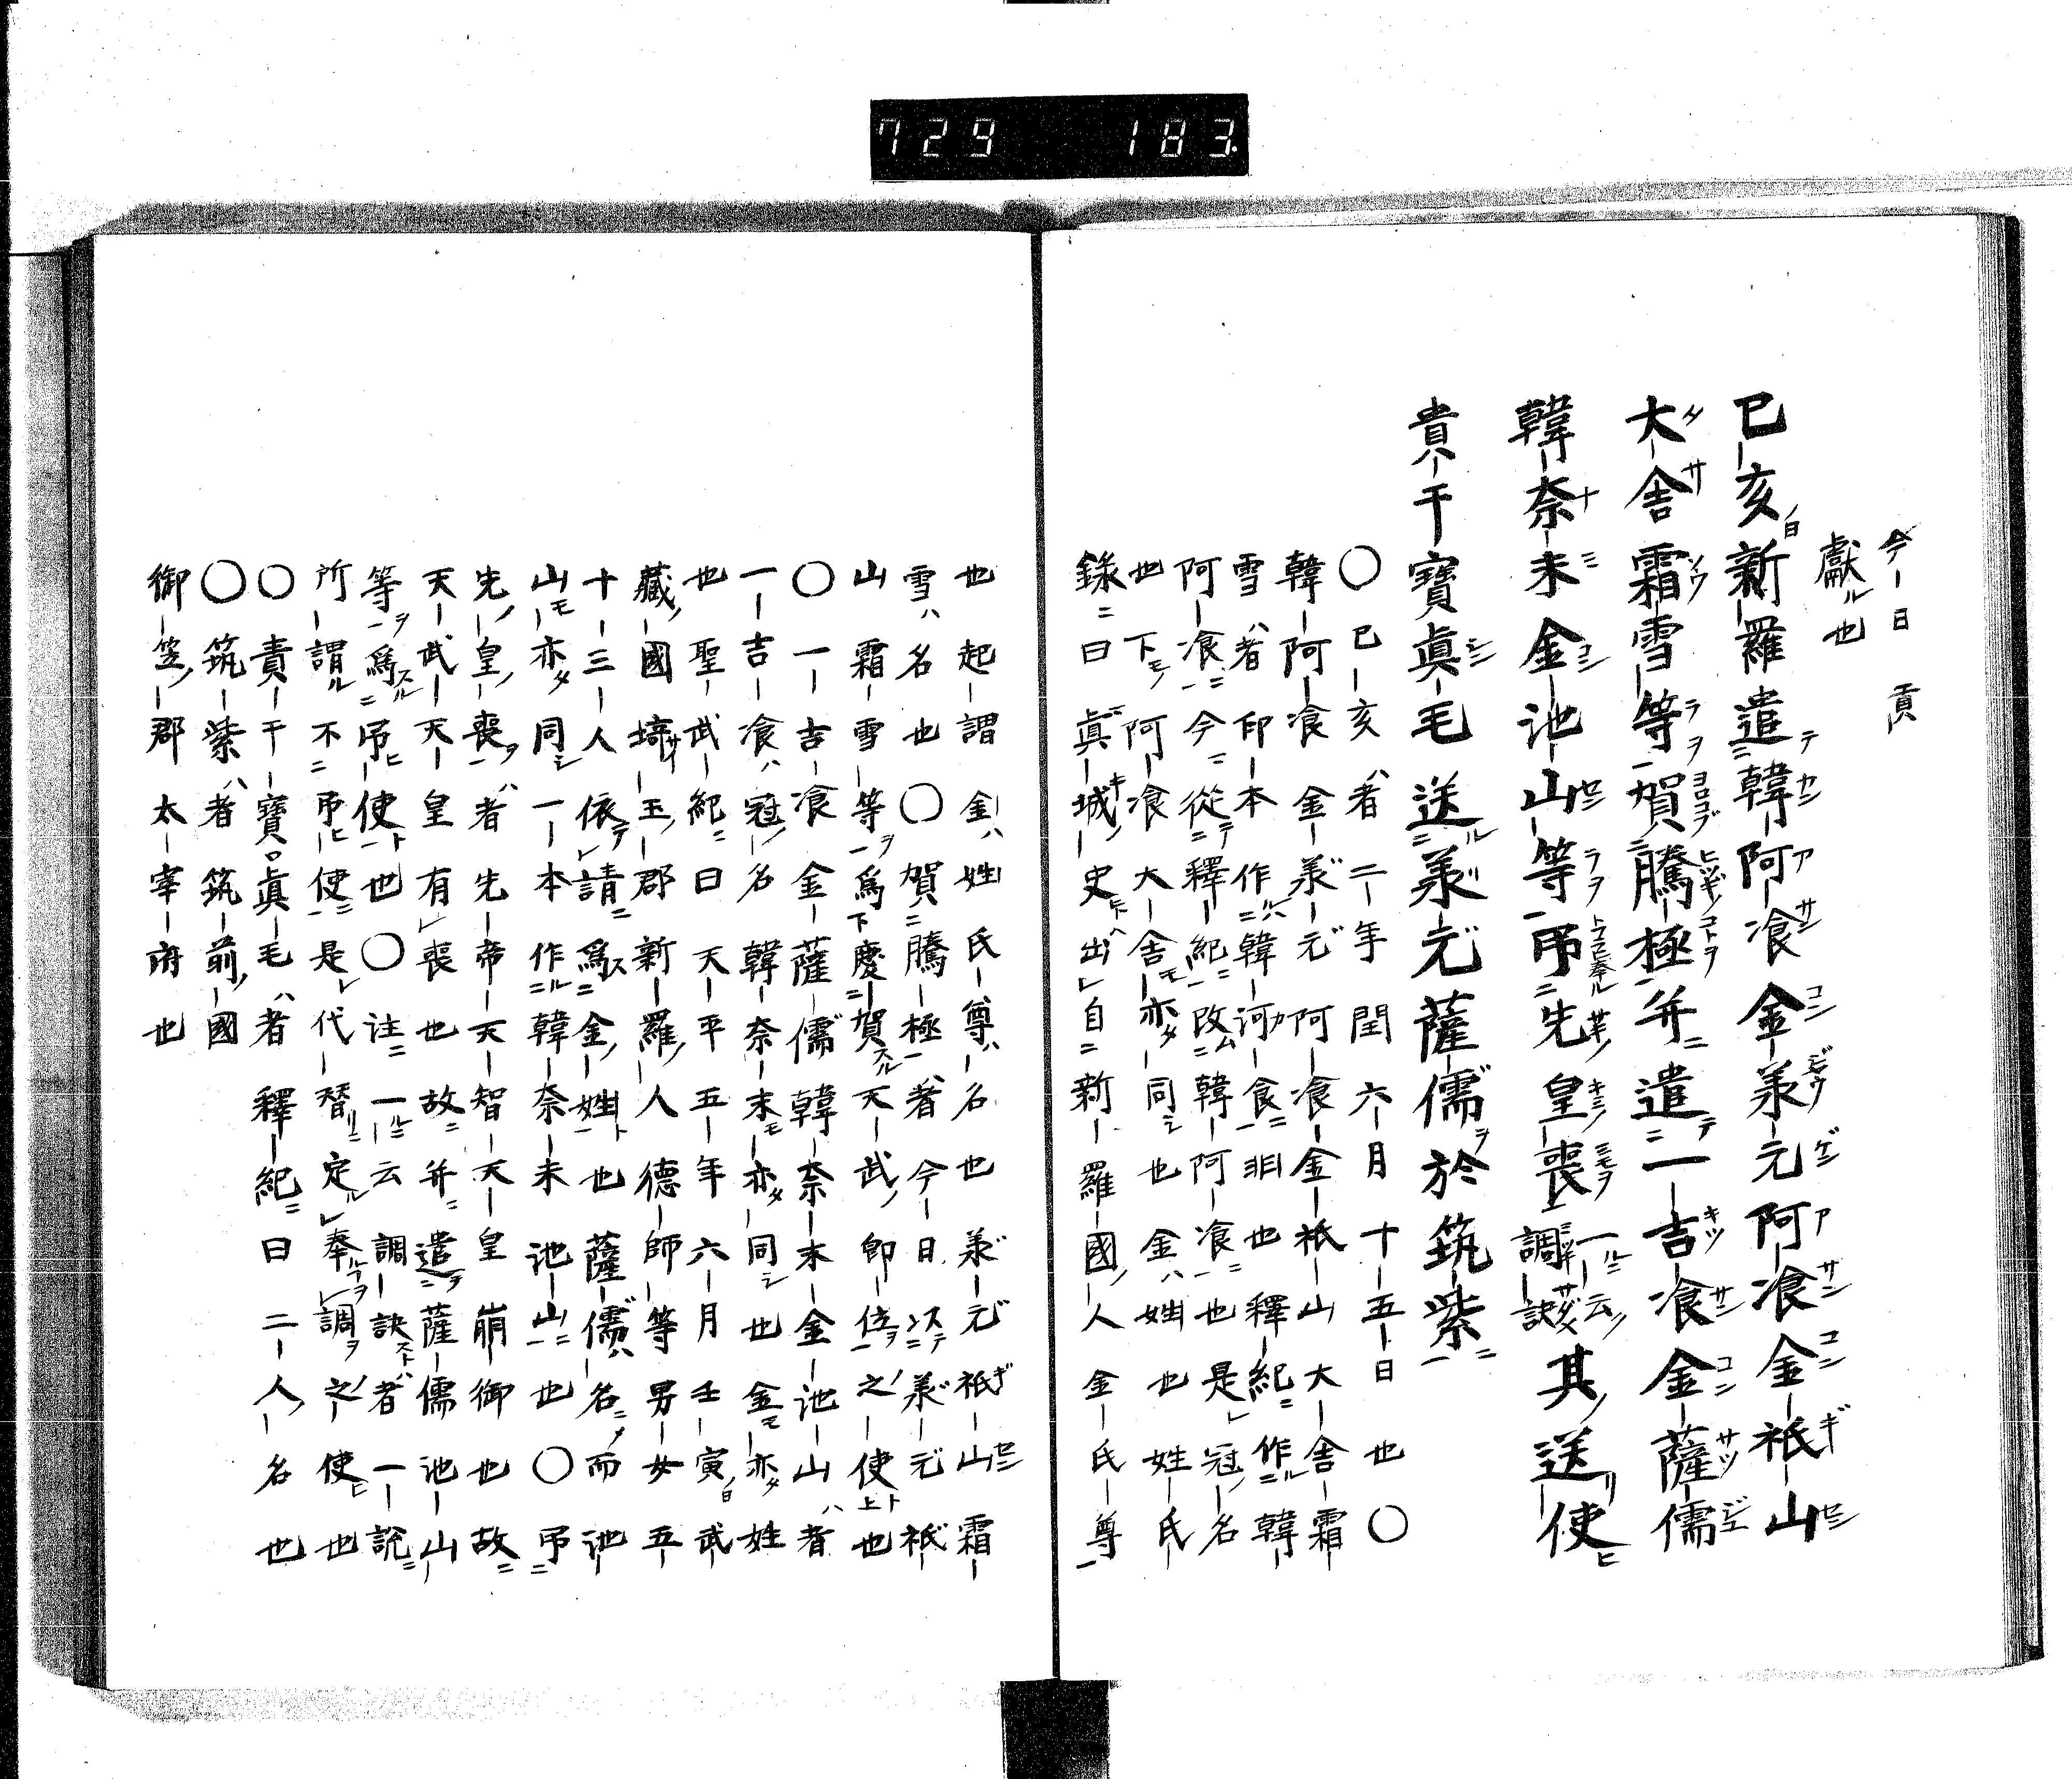 729 183.
今日貢
獻ル也
已亥新羅遣韓阿飡金羕元阿飡金祇山
大舎霜雪等賀騰極并遣一吉飡金薩儒
韓奈末金池山等弔先皇喪一云調訣其送使
貴干寶眞毛送羕元薩儒於筑紫
〇已亥者二年閏六月十五日也〇
韓阿飡金羕元阿飡金祇山大舎霜
雪者印本作韓河食非也釋紀作韓
阿飡今從釋紀改韓阿飡也是冠名
也下阿飡大舎亦同也金姓也姓氏
錄曰眞城史出自新羅國人金氏尊
也起謂金姓氏尊名也羕元祇山霜
雪名也〇賀騰極者今日羕元祇
山霜雪等爲慶賀天武即位之使也
〇一吉飡金薩儒韓奈末金池山者
一吉飡冠名韓奈末亦同也金亦姓
也聖武紀曰天平五年六月壬寅武
藏國埼玉郡新羅人德師等男女五
十三人依請爲金姓也薩儒名而池
山亦同一本作韓奈末池山也〇弔
先皇喪者先帝天智天皇崩御也故
天武天皇有喪也故并遣薩儒池山
等爲弔使也〇注一云調訣者一說
所謂不弔使是代替定奉調之使也
〇責干寶眞毛者釋紀曰二人名也
〇筑紫者筑前國
御笠郡太宰府也